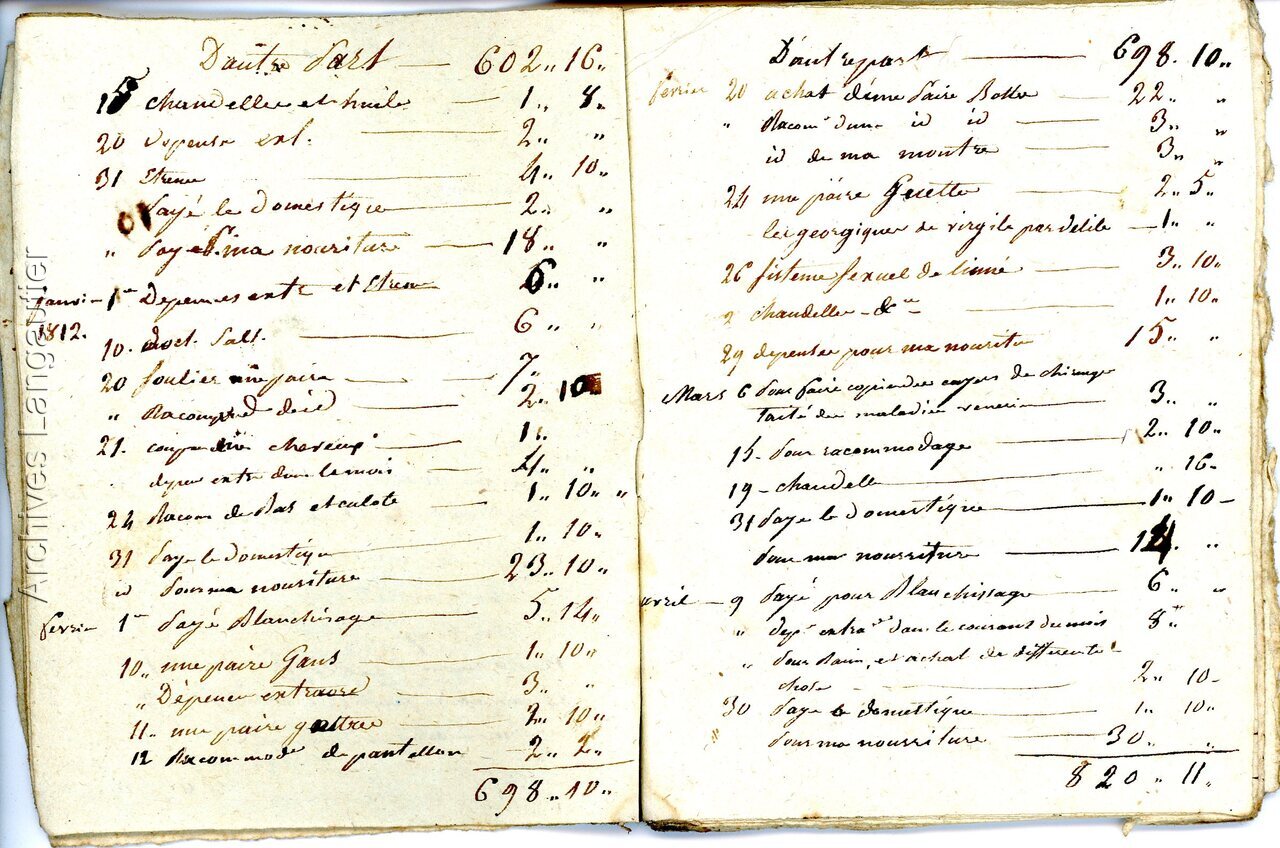 D'autre Part — 602 " 16 "
15 chandelle et huile — 1 " 8 "
20 Depense ext. — 2 " "
31 Etrene — 4 " 10 "
Payé le Domestique — 2 " "
" Payé P. ma nouriture — 18 " "
Janvier 1er Depences exte et Etren — 6 " "
1812.
10. — 6 " "
20 soulier une paire — 7 "
" — 2 " 10
21. coupe cheveux — 1 "
depen extre dans le mois — 4 " "
24 Racom de Bas et culote — 1 " 10 " "
31 Paye le Domestique — 1 " 10 "
id Pour ma nouriture — 23 " 10 "
fevrier 1er Payé Blanchisage — 5 " 14 "
10 " une paire Gans — 1 " 10 "
" Dépence extraore — 3 " "
11. une paire guettre — 2 " 10 "
12 Racommode de pantallon — 2 " 2 "
698 " 10 "
D'autrepart — 698 . 10 "
fevrier 20 achat d'une Paire Botte — 22 " "
" Racomt d'une id id — 3 " "
id de ma montre — 3 " "
24 une paire Guette — 2 " 5 "
les georgiques de virgile par delile — 1 " "
26 sisteme sexuel de linné — 3 " 10 "
2 chandelle — &ca — 1 " 10 "
29 depensé pour ma nourite — 15 " "
Mars 6 Pour faire copier des cayers de chirurge
taité des maladies veneriene — 3 " "
15 — Pour racommodage — 2 " 10 "
19 — chandelle — " 16 —
31 Paye le Domestique — 1 " 10 —
Pour ma nourriture — 14 . "
avril — 9 Payé pour Blanchissage — 6 " "
" depe extrare Dans le courant du mois 8 "
" Pour Bain, et achat de differente
chose — 2 " 10 —
30 Paye le domestique — 1 " 10 "
" Pour ma nourriture — 30 " "
820 " 11 "
Archives Langautier